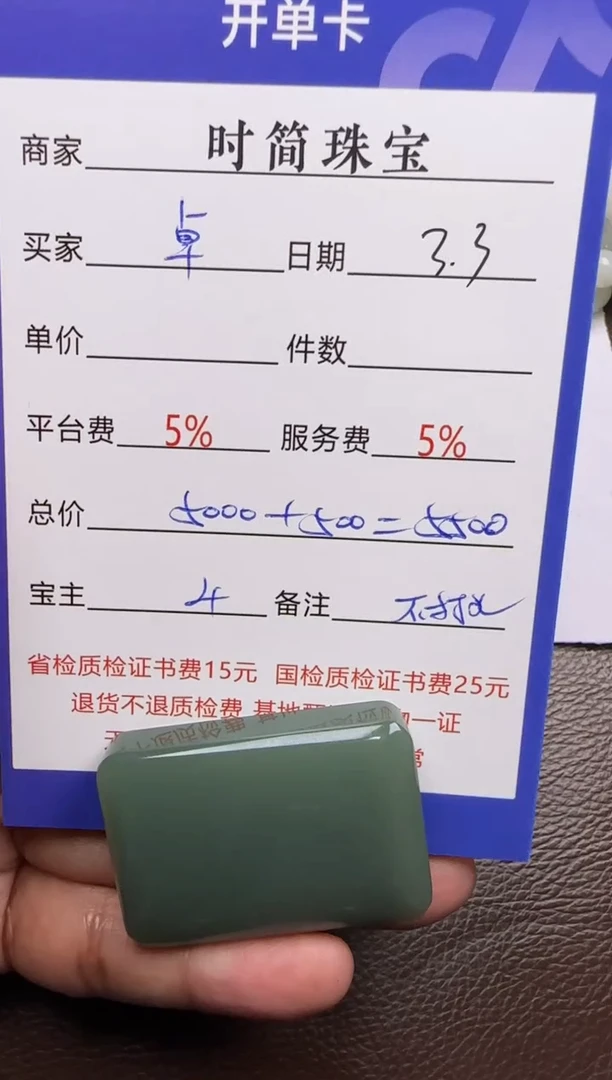 开单卡
商家 时简珠宝
买家 卓 日期 3.3
单价 件数
平台费 5% 服务费 5%
总价 5000+500=5500
宝主 4 备注
省检质检证书费15元 国检质检证书费25元
退货不退质检费 基地 一证
常